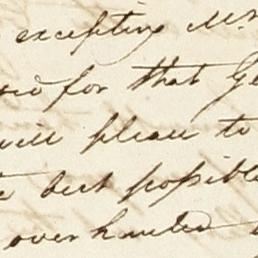 excepting Mr
for that Ge
will please to
best possible
overhauled